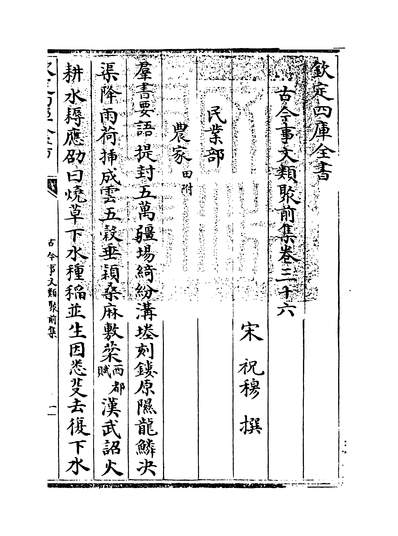 欽定四庫全書
古今事文類聚前集卷三十六
宋 祝穆 撰
民業部
農家田附
羣書要語 提封五萬疆場綺紛溝塍刻鏤原隰龍鱗决
渠降雨荷揷成雲五穀垂穎桑麻敷棻西都賦漢武詔火
耕水耨應劭曰燒草下水種稲並生因悉芟去復下水
古今事文類聚前集